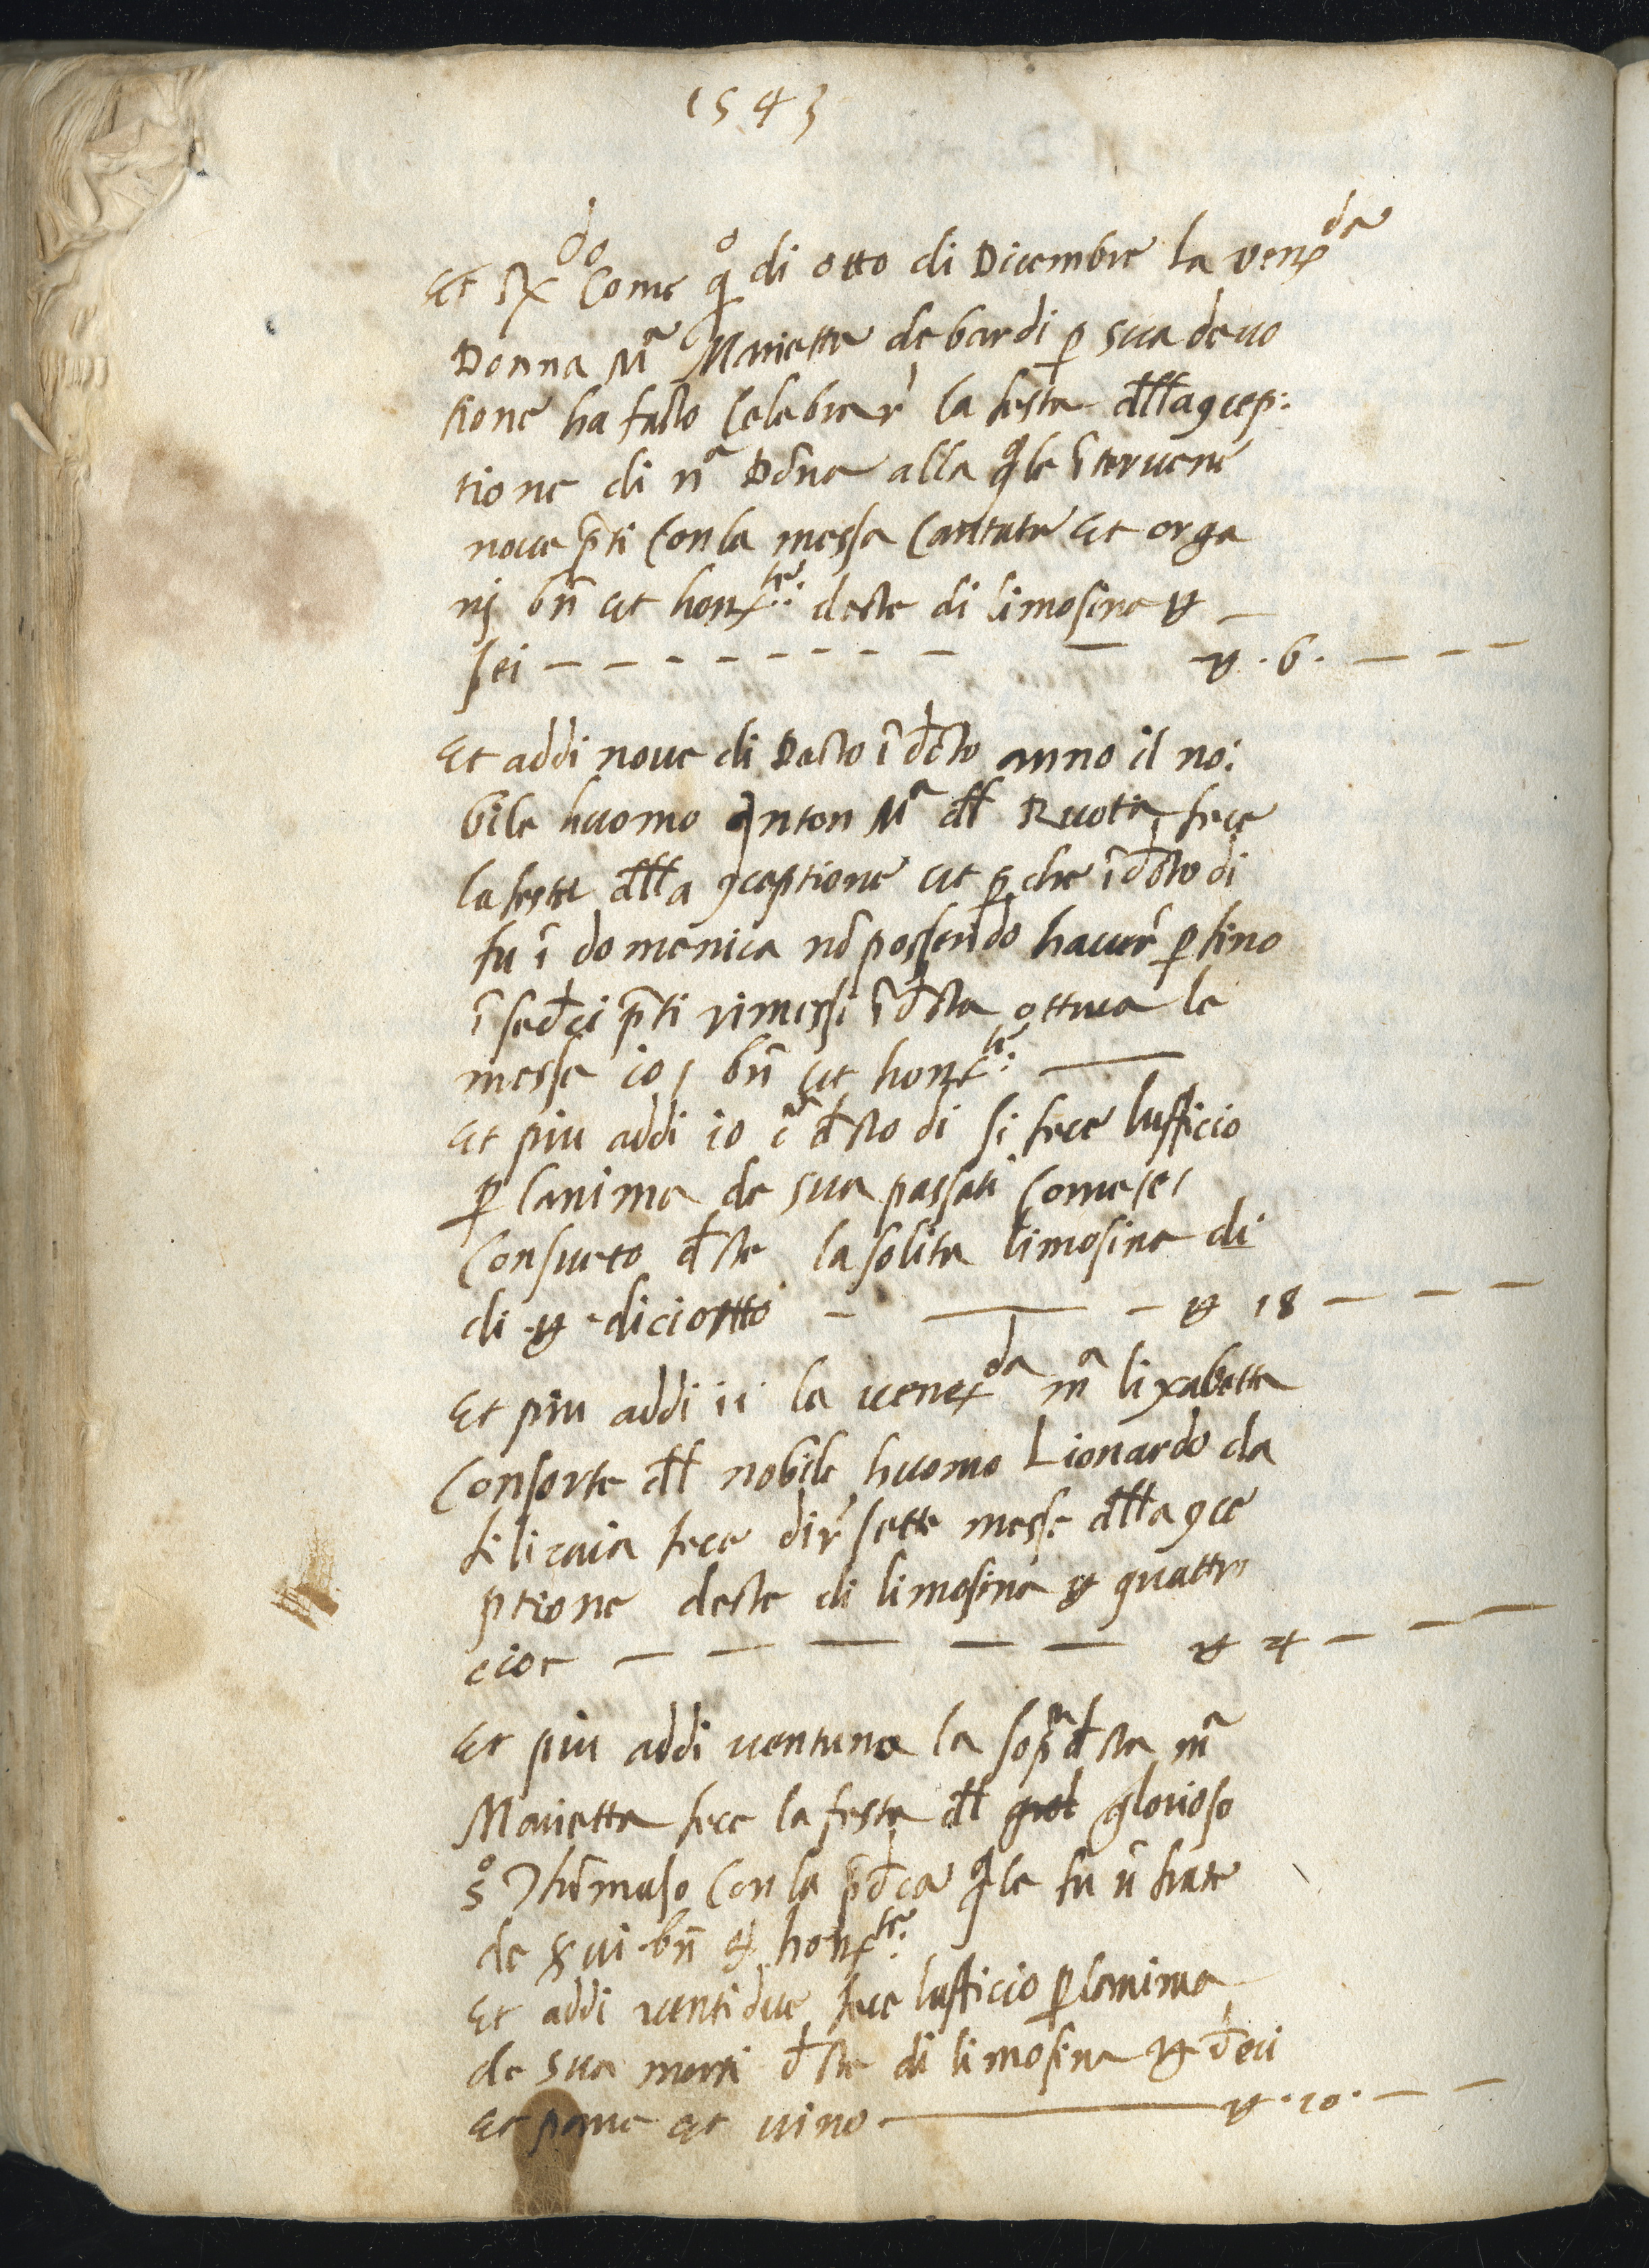 1543
Et Rdo Come qo di otto di Dicembre la venda
Donna Ma Marietta de bardi p sua deuo
tione ha facto Celebrar la festa dlla 9cep:
tione di na Dōna alla qle īteruene
noue p̄ti Con la messa Cantata Et orga
nj bn̄ et honte: decte di limosina ℔
sei ℔ .6.
Et addi noue di Decto ī dcto anno il no:
bile huomo Anton Ma dl Ruota fece
la festa dlla 9ceptione et p che ī dcto di
fu ī domenica nō possendo hauer p fino
ī sedci p̄ti rimessi ī dcta ottua le
messe 10 / bn̄ et honte:
Et piu addi 10 ī dcto di si fece lufficio
p lanima de sua passati Come e
Consueto dcte la solita limosina di
di ℔ diciotto ℔ 18
Et piu addi 11 la uenda ma lixabetta
Consorte dl nobile huomo Lionardo da
filicaia fece dir sette messe dlla 9ce
ptione decte di limosina ℔ quattro
cioe ℔ 4
Et piu addi uentuno la sopa dcta ma
Marietta fece la festa dl glorioso
so Thōmaso Con la p̄dca qle fu ū frate
de Serui bn̄ & honte:
Et addi uentidue fece lufficio p lanima
de sua morti dcte di limosina ℔ dieci
et pane et uino ℔ .10.